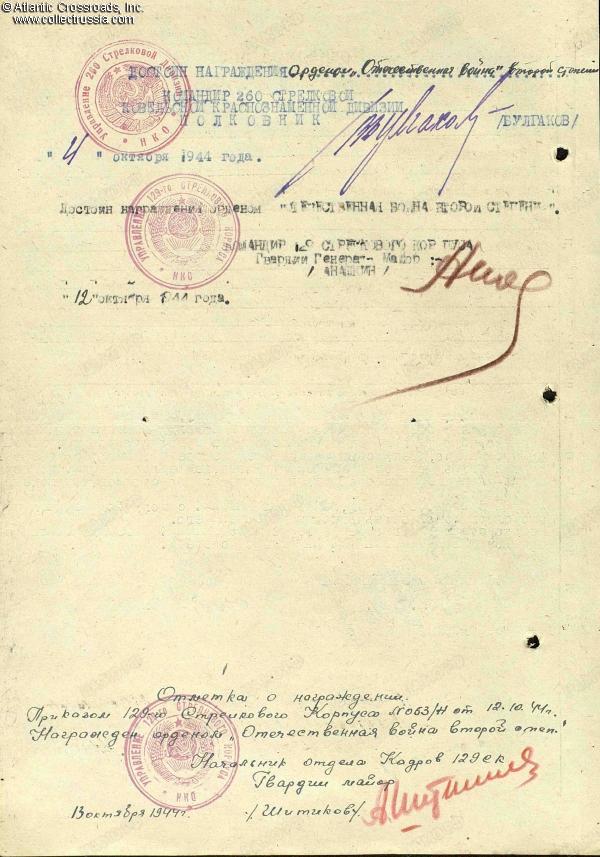 © Atlantic Crossroads, Inc.
www.collectrussia.com
ДОСТОИН НАГРАЖДЕНИЯ Орденом „Отечественная война" второй степени
КОМАНДИР 260 СТРЕЛКОВОЙ
КОВЕЛЬСКОЙ КРАСНОЗНАМЕННОЙ ДИВИЗИИ
ПОЛКОВНИК /БУЛГАКОВ/
" 4 " октября 1944 года.
Управление 260 Стрелковой
НКО
Достоин награждения орденом "ОТЕЧЕСТВЕННАЯ ВОЙНА ВТОРОЙ СТЕПЕНИ".
КОМАНДИР 129 СТРЕЛКОВОГО КОРПУСА
Гвардии Генерал- Майор :-
/ АНАШКИН/
"12"октября 1944 года.
УПРАВЛЕНИЕ 129-го СТРЕЛКОВОГО КОРПУСА
НКО
Отметка о награждении.
Приказом 129-го Стрелкового Корпуса №063/н от 12.10.44г.
Награжден орденом „Отечественная война второй степ."
Начальник отдела Кадров 129 ск
Гвардии майор
13 октября 1944г. /Шитиков/
УПРАВЛЕНИЕ 129-го СТРЕЛКОВОГО КОРПУСА
НКО